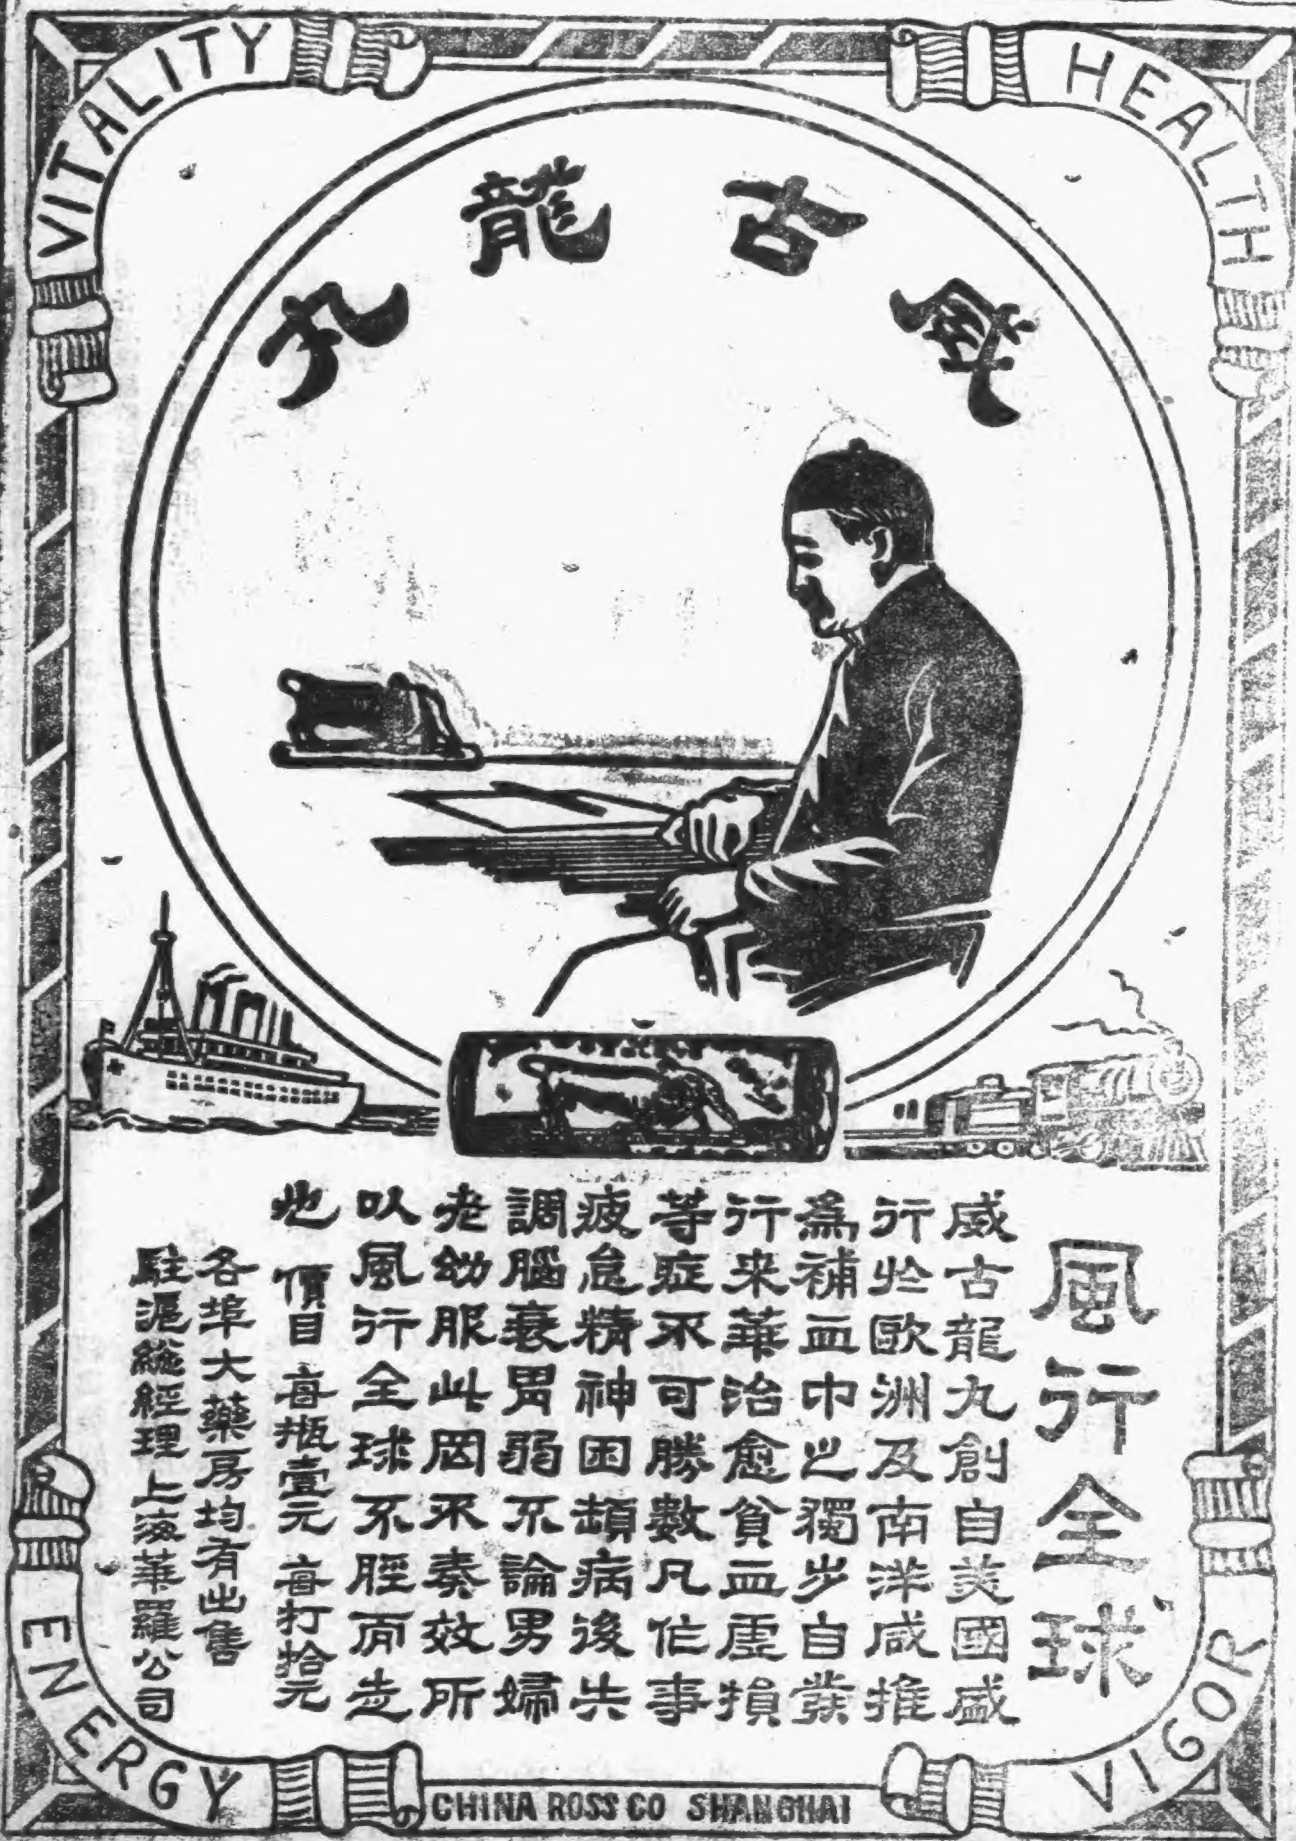 VITALITY
HEALTH
威古龍丸
風行全球
威古龍丸創自美國盛
行於歐洲及南洋咸推
為補血中之獨步自發
行来華治愈貧血虛損
等症不可勝數凡作事
疲怠精神困頓病後失
調腦衰胃弱不論男婦
老幼服此罔不奏效所
以風行全球不脛而走
也 價目 每瓶壹元 每打拾元
各埠大藥房均有出售
駐滬總經理 上海華羅公司
ENERGY
VIGOR
CHINA ROSS CO SHANGHAI